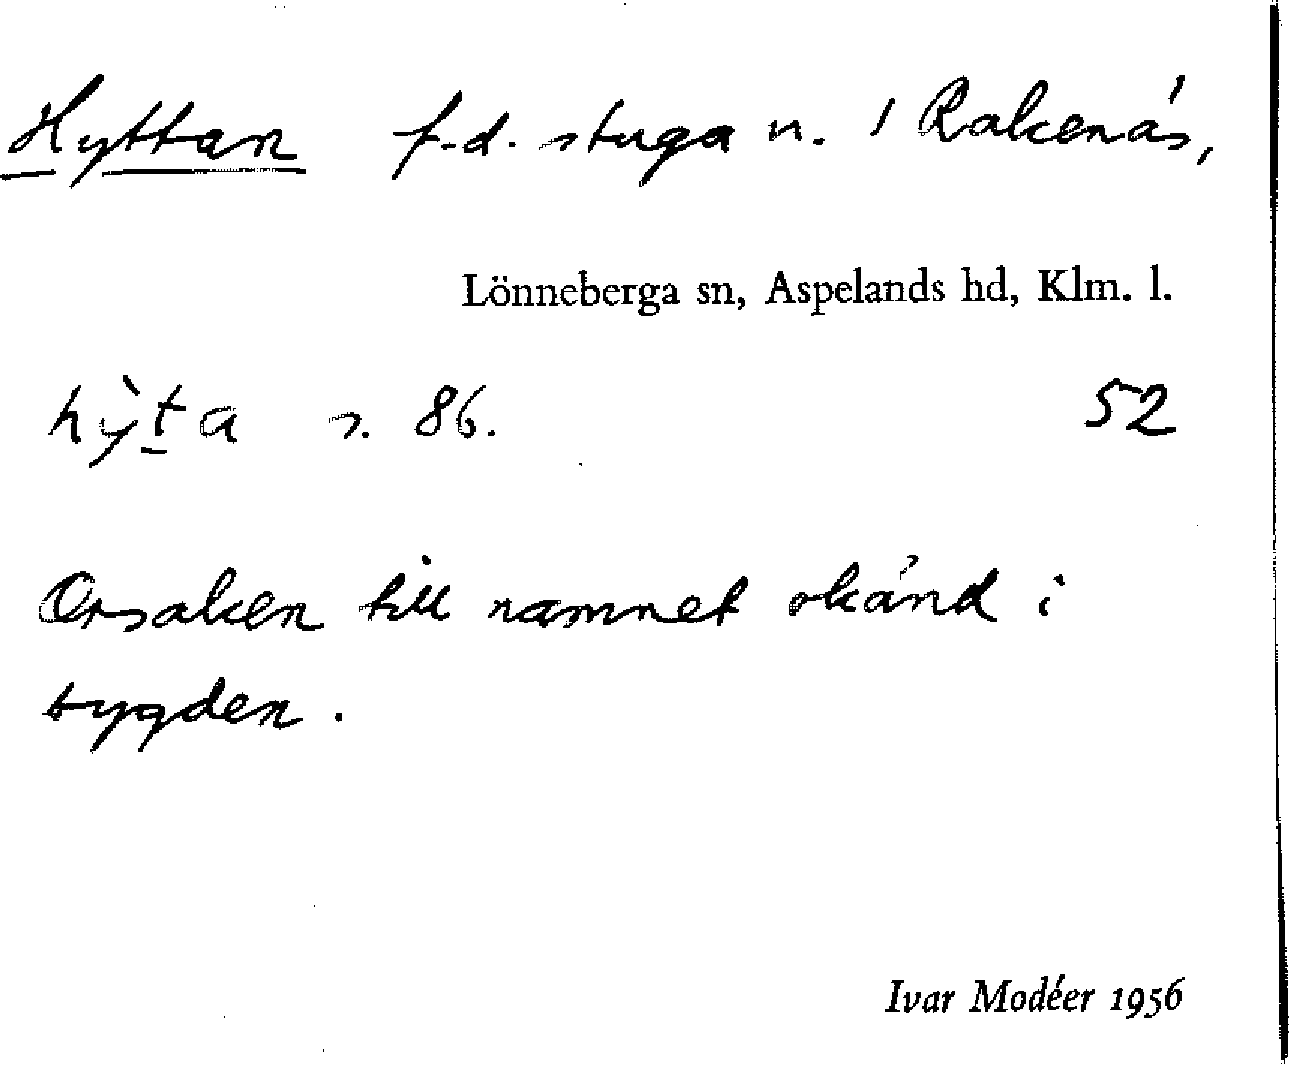 Hyttan f.d. stuga n. 1 Rakenäs,
Lönneberga sn, Aspelands hd, Klm. l.
hỳt̲a s. 86. 52
Orsaken till namnet okänd i
bygden.
Ivar Modéer 1956